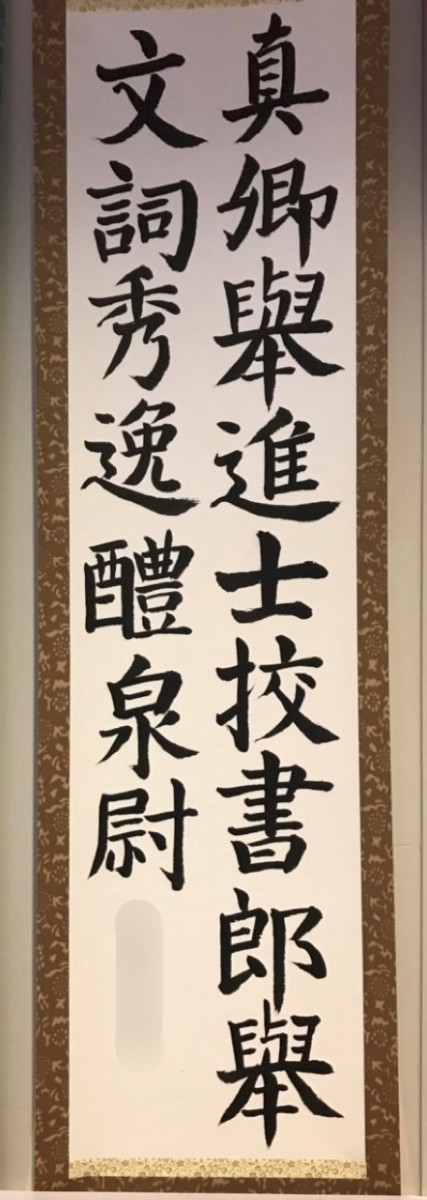 真卿舉進士挍書郎舉
文詞秀逸醴泉尉